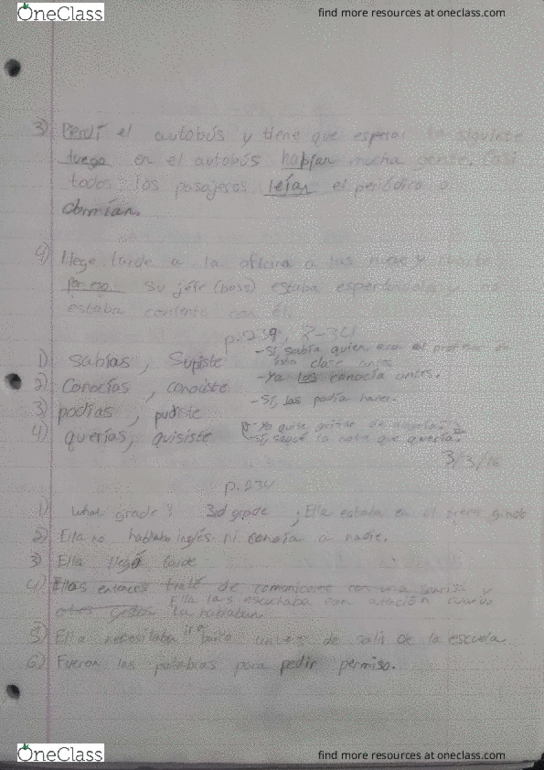 OneClass
find more resources at oneclass.com
3) Perdí el autobús y tiene que esperar la siguiente
luego en el autobús habían mucha gente. Casi
todos los pasajeros leían el periódico o
dormían.
4) Llege tarde a la oficina a las nueve y cuarto
Por eso su jefe (boss) estaba esperándolo y no
estaba contento con él.
p.239, 7-34
1) sabías, supiste -Sí, sabía quien era el profesor
clase antes
2) Conocías, conociste -Ya los conocía antes.
3) podías, pudiste -Sí, las podía hacer.
4) querías, quisiste Yo quise
-Sí, saqué la nota que quería.
3/3/16
p.234
1) What grade? 3rd grade, Ella estaba en el grado
2) Ella no hablaba inglés ni conocía a nadie.
3) Ella llegó tarde
4) Ellas entonces trató de comunicarse con una sonrisa y
otros gestos Ella las escuchaba con atención cuando
la hablaban.
5) Ella necesitaba ir al baño antes de salir de la escuela.
6) Fueron las palabras para pedir permiso.
OneClass
find more resources at oneclass.com